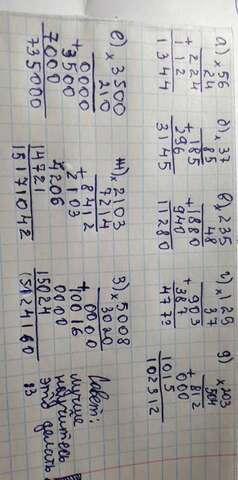 а) ×56
24
+224
112
1344
д) ×37
85
+185
296
3145
в) ×235
48
+1880
940
11280
г) ×129
37
+903
387
4773
д) ×203
504
+812
000
1015
102312
е) ×3500
210
0000
+3500
7000
735000
ж) ×2103
7214
+8412
2103
4206
14721
15171042
з) ×5008
3020
0000
+10016
0000
15024
15124160
Совет:
лучше
научитесь
это делать